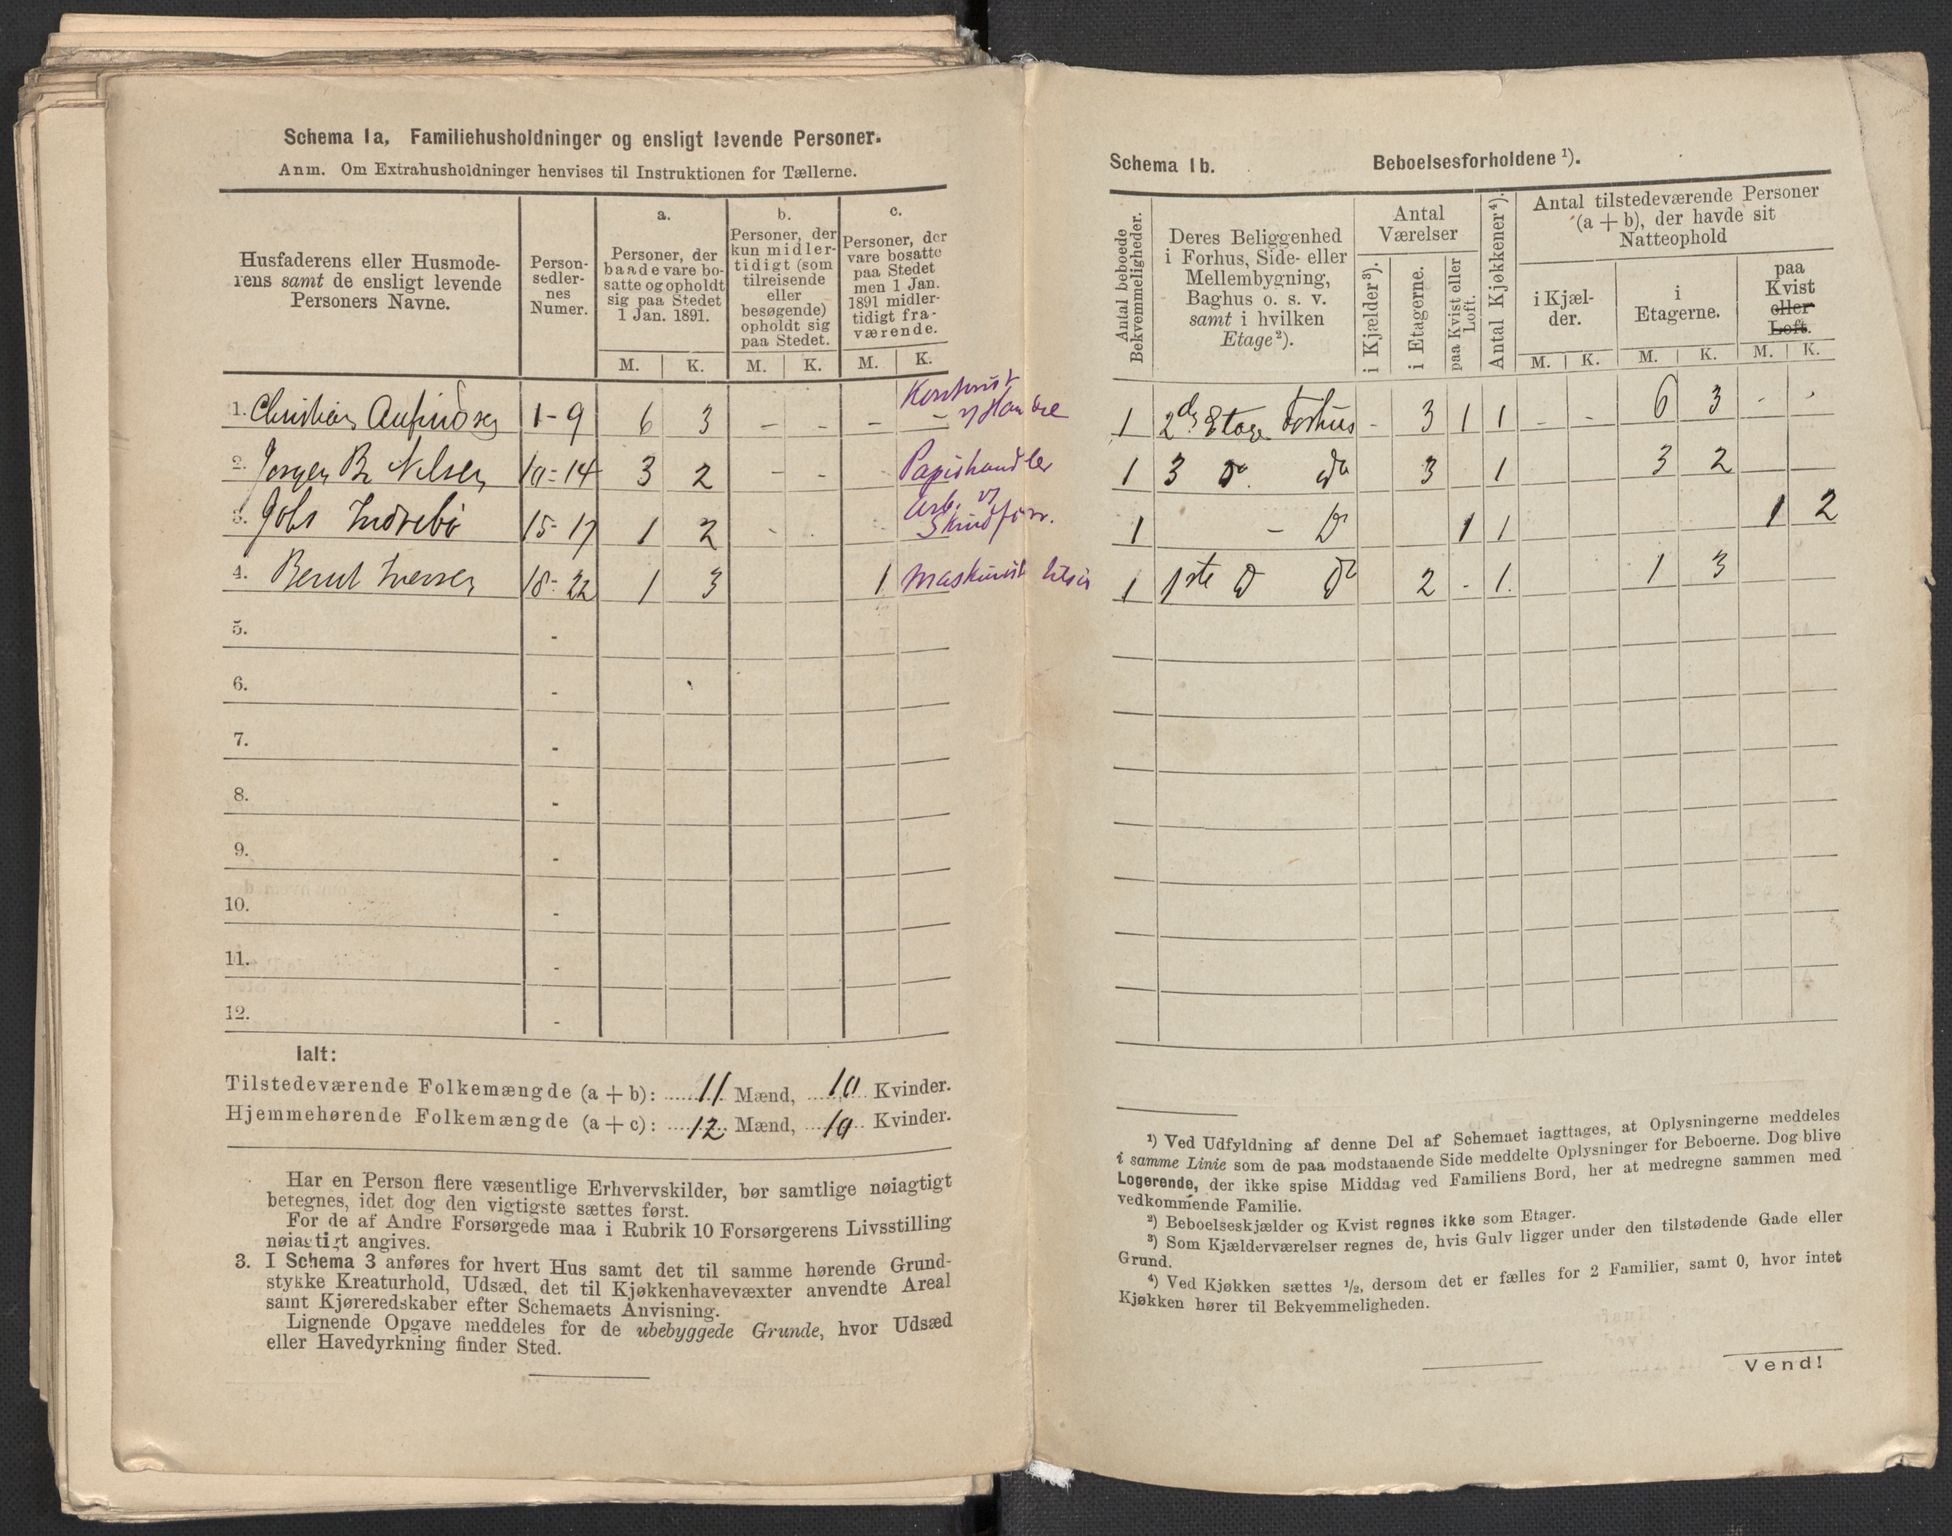 Schema 1a. Familiehusholdninger og ensligt levende Personer.
Anm. Om Extrahusholdninger henvises til Instruktionen for Tællerne.
Husfaderens eller Husmode-
rens samt de ensligt levende
Personers Navne.
Person-
sedler-
nes
Numer.
a.
Personer, der
baade vare bo-
satte og opholdt
sig paa Stedet
1 Jan. 1891.
b.
Personer, der
kun midler-
tidigt (som
tilreisende
eller
besøgende)
opholdt sig
paa Stedet.
c.
Personer, der
vare bosatte
paa Stedet
men 1 Jan.
1891 midler-
tidigt fra-
værende.
M. K. M. K. M. K.
1. Christian 1-9 6 3 - - - -
2. Jørgen B. Nilsen 10-14 3 2 - - Papirhandler
3. Indrebø 15-17 1 2 - . Arb. v
4. Bernt Iversen 18-22 1 3 1 Maskinist
5. -
6. -
7. -
8. -
9. -
10. -
11. -
12. -
Ialt:
Tilstedeværende Folkemængde (a + b): 11 Mænd, 10 Kvinder.
Hjemmehørende Folkemængde (a + c): 12 Mænd, 10 Kvinder.
Har en Person flere væsentlige Erhvervskilder, bør samtlige nøiagtigt
betegnes, idet dog den vigtigste sættes først.
For de af Andre Forsørgede maa i Rubrik 10 Forsørgerens Livsstilling
nøiagtigt angives.
3. I Schema 3 anføres for hvert Hus samt det til samme hørende Grund-
stykke Kreaturhold, Udsæd, det til Kjøkkenhavevæxter anvendte Areal
samt Kjøreredskaber efter Schemaets Anvisning.
Lignende Opgave meddeles for de ubebyggede Grunde, hvor Udsæd
eller Havedyrkning finder Sted.
Schema 1b. Beboelsesforholdene ¹).
Antal beboede
Bekvemmeligheder.
Deres Beliggenhed
i Forhus, Side- eller
Mellembygning,
Baghus o. s. v.
samt i hvilken
Etage ²).
Antal
Værelser
i Kjælder ³).
i Etagerne.
paa Kvist eller
Loft.
Antal Kjøkkener ⁴).
Antal tilstedeværende Personer
(a + b), der havde sit
Natteophold
i Kjæl-
der.
i
Etagerne.
paa
Kvist
eller
Loft.
M. K. M. K. M. K.
1 2den Etage Forhus - 3 1 1 - - 6 3 - .
1 3 do. do 3 1 3 2
1 - do 1 1 1 2
1 1ste do do 2 - 1. 1 3
¹) Ved Udfyldning af denne Del af Schemaet iagttages, at Oplysningerne meddeles
i samme Linie som de paa modstaaende Side meddelte Oplysninger for Beboerne. Dog blive
Logerende, der ikke spise Middag ved Familiens Bord, her at medregne sammen med
vedkommende Familie.
²) Beboelseskjælder og Kvist regnes ikke som Etager.
³) Som Kjælderværelser regnes de, hvis Gulv ligger under den tilstødende Gade eller
Grund.
⁴) Ved Kjøkken sættes ½, dersom det er fælles for 2 Familier, samt 0, hvor intet
Kjøkken hører til Bekvemmeligheden.
Vend!